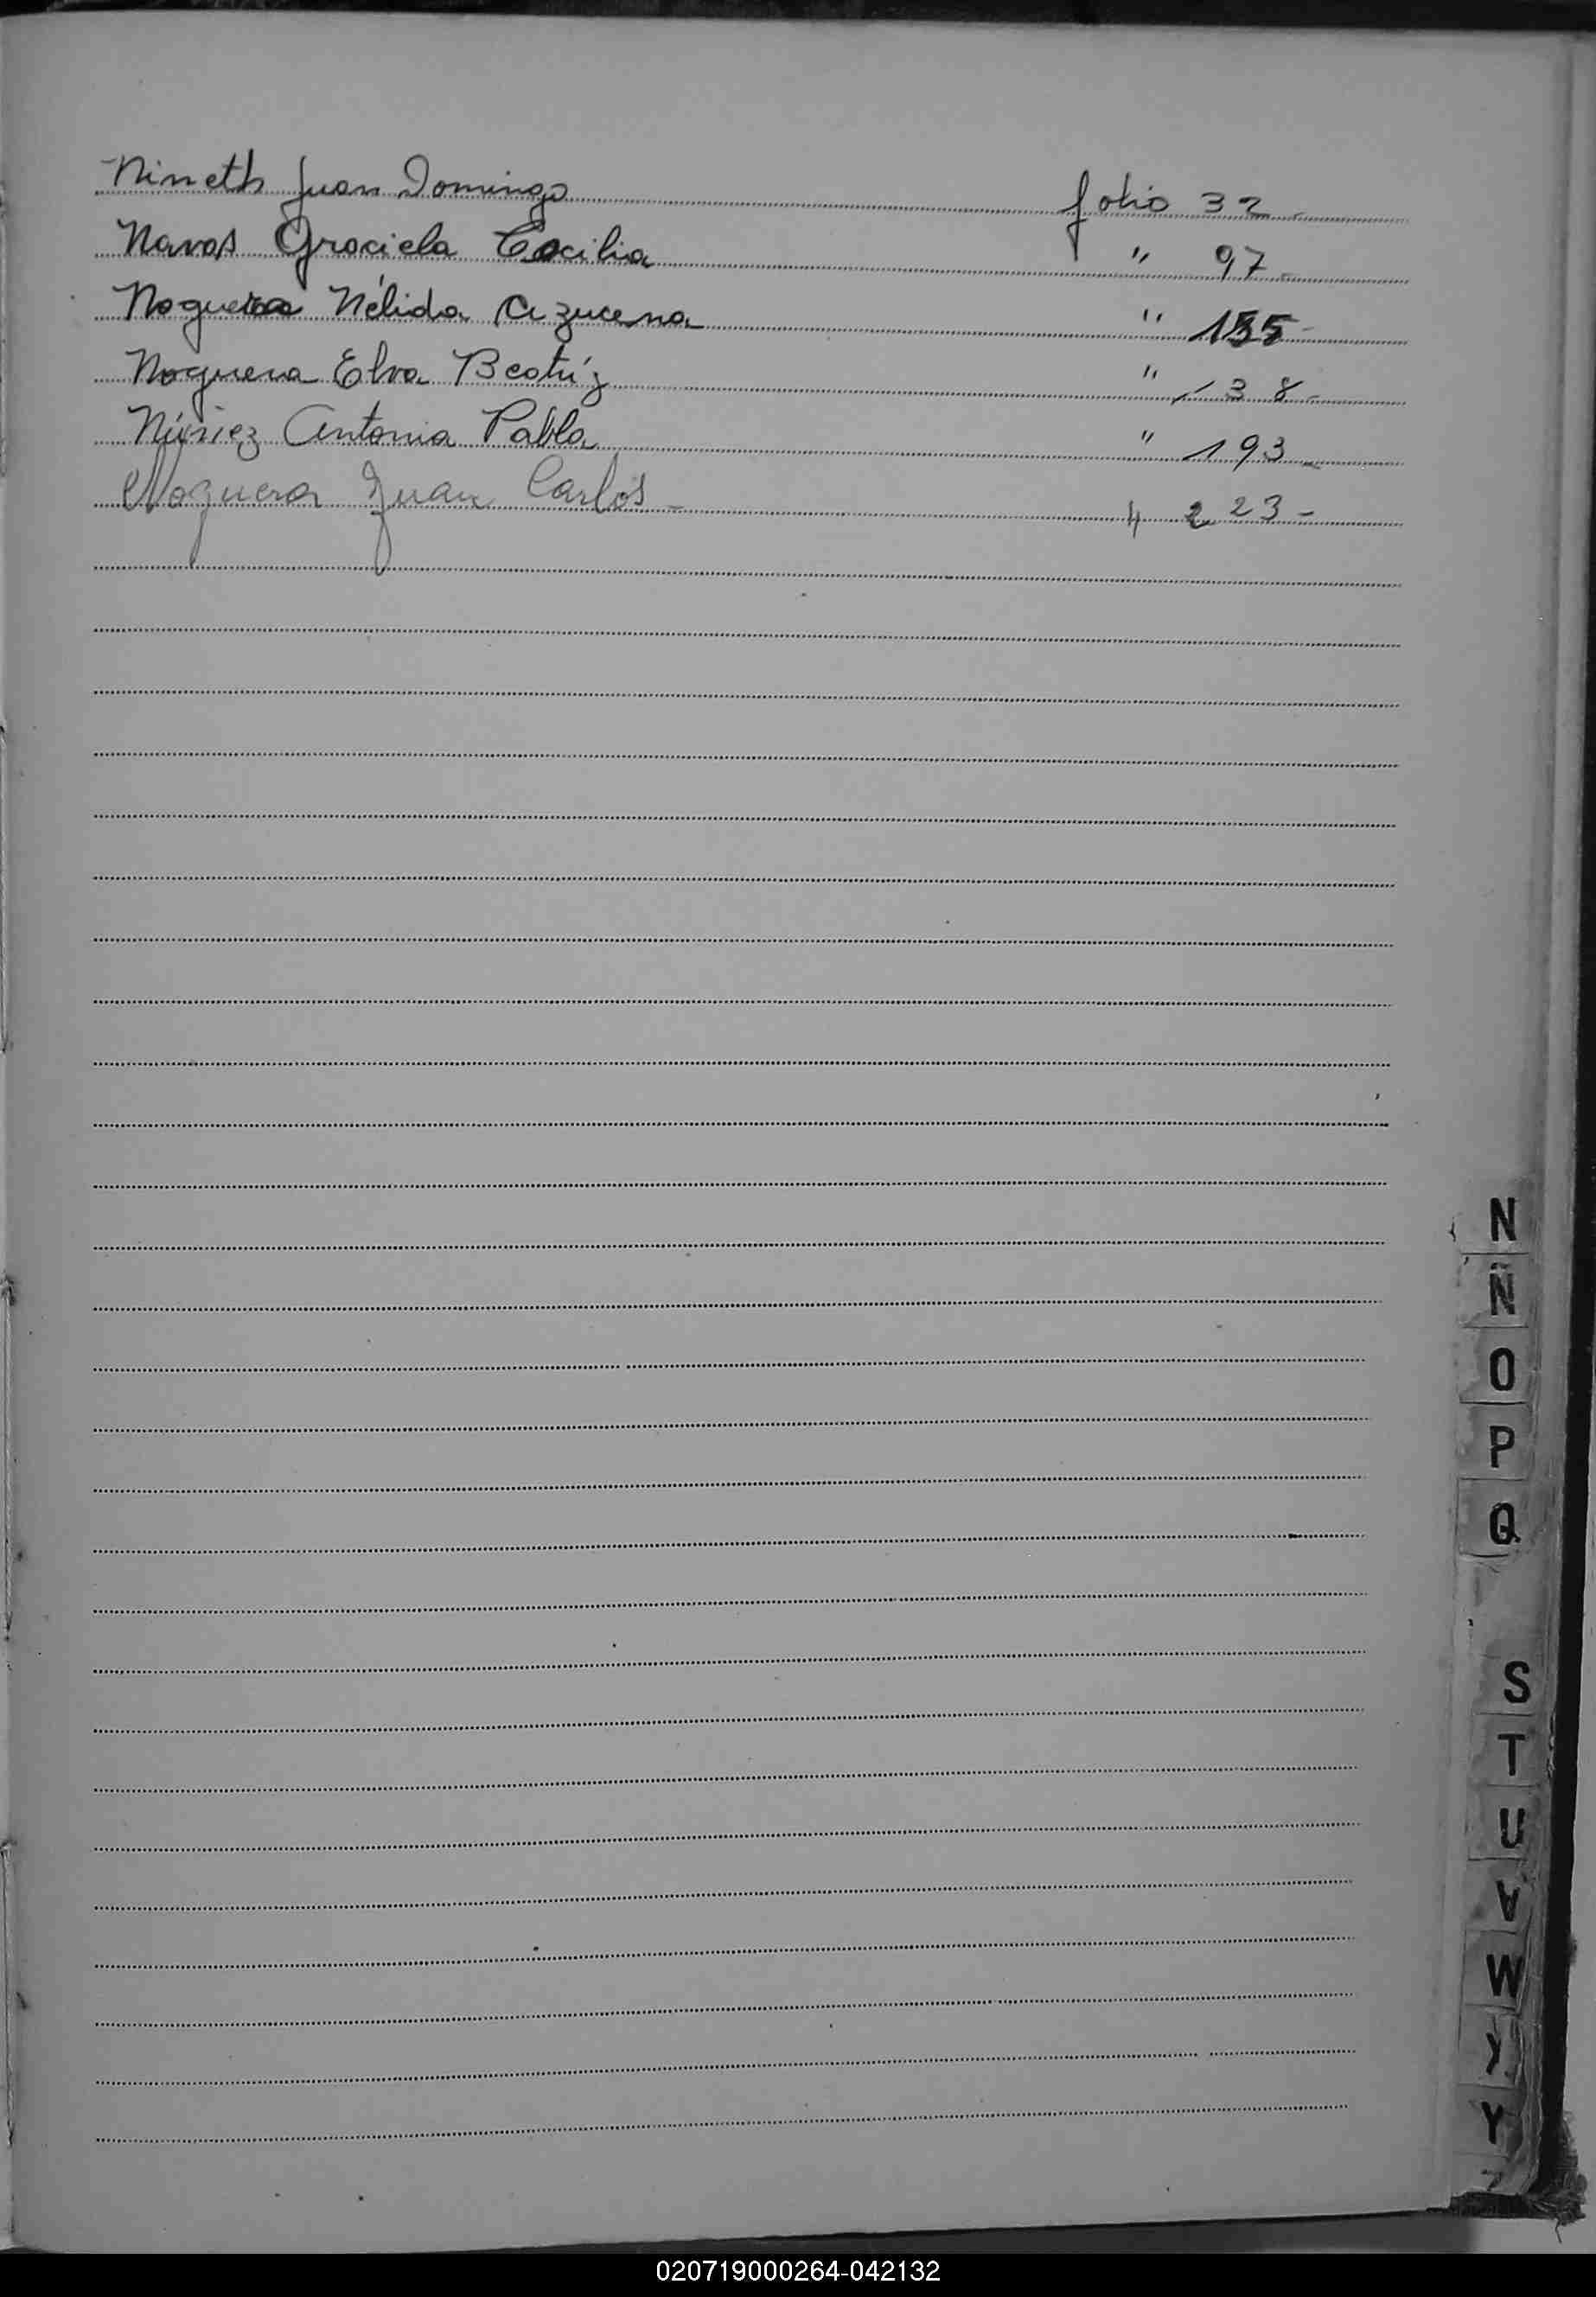 Nimeth Juan Domingo folio 32 -
Navas Graciela Cecilia " 97 -
Noguera Nélida Azucena " 155 -
Noguera Elva Beatríz " 138 -
Núñez Antonia Pabla " 193 -
Noguera Juan Carlos - " 223 -
N
Ñ
O
P
Q
S
T
U
V
W
Y
020719000264-042132